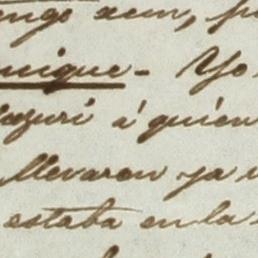 tengo aun, p
nique - Yo
azuri á quien
llevaron ya
estaba en la